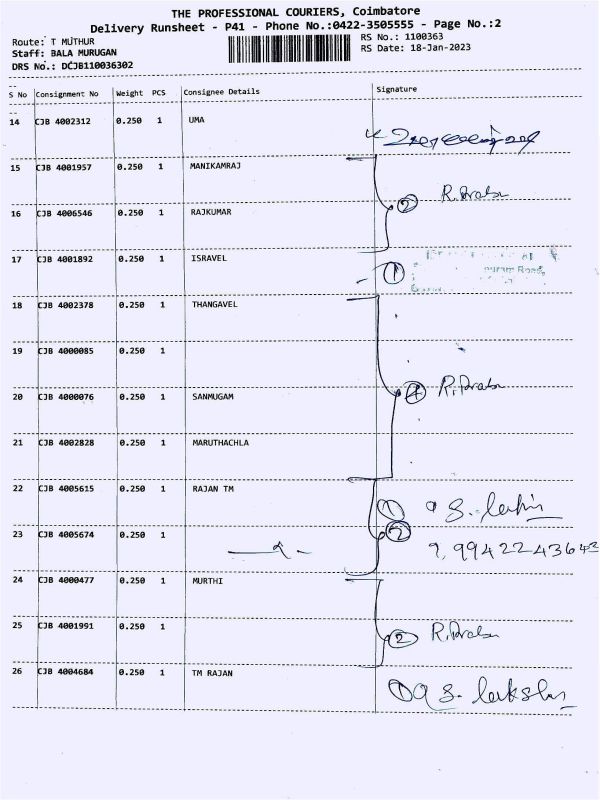 THE PROFESSIONAL COURIERS, Coimbatore
Delivery Runsheet - P41 - Phone No.:0422-3505555 - Page No.:2
Route: T MUTHUR
Staff: BALA MURUGAN
DRS No.: DCJB110036302
RS No.: 1100363
RS Date: 18-Jan-2023
S No Consignment No Weight PCS Consignee Details Signature
14 CJB 4002312 0.250 1 UMA
15 CJB 4001957 0.250 1 MANIKAMRAJ
② R.Prabu
16 CJB 4006546 0.250 1 RAJKUMAR
17 CJB 4001892 0.250 1 ISRAVEL
① Road,
18 CJB 4002378 0.250 1 THANGAVEL
19 CJB 4000085 0.250 1
20 CJB 4000076 0.250 1 SANMUGAM
④ R.Prabu
21 CJB 4002828 0.250 1 MARUTHACHLA
22 CJB 4005615 0.250 1 RAJAN TM
① S.
23 CJB 4005674 0.250 1
②
24 CJB 4000477 0.250 1 MURTHI
25 CJB 4001991 0.250 1
② R.Prabu
26 CJB 4004684 0.250 1 TM RAJAN
① S.